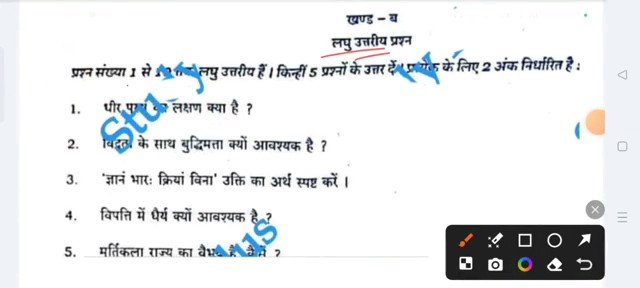 खण्ड - ब
लघु उत्तरीय प्रश्न
प्रश्न संख्या 1 से लघु उत्तरीय हैं। किन्हीं 5 प्रश्नों के उत्तर दें। प्रत्येक के लिए 2 अंक निर्धारित है :
1. धीर का लक्षण क्या है ?
2. के साथ बुद्धिमत्ता क्यों आवश्यक है ?
3. 'ज्ञानं भारः क्रियां विना' उक्ति का अर्थ स्पष्ट करें ।
4. विपत्ति में धैर्य क्यों आवश्यक है ?
5. मूर्तिकला राज्य का ?
Study